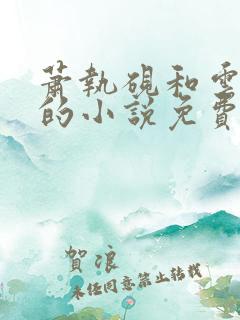 蕭執硯和雲
的小說免費
賀浪
未經同意禁止转载